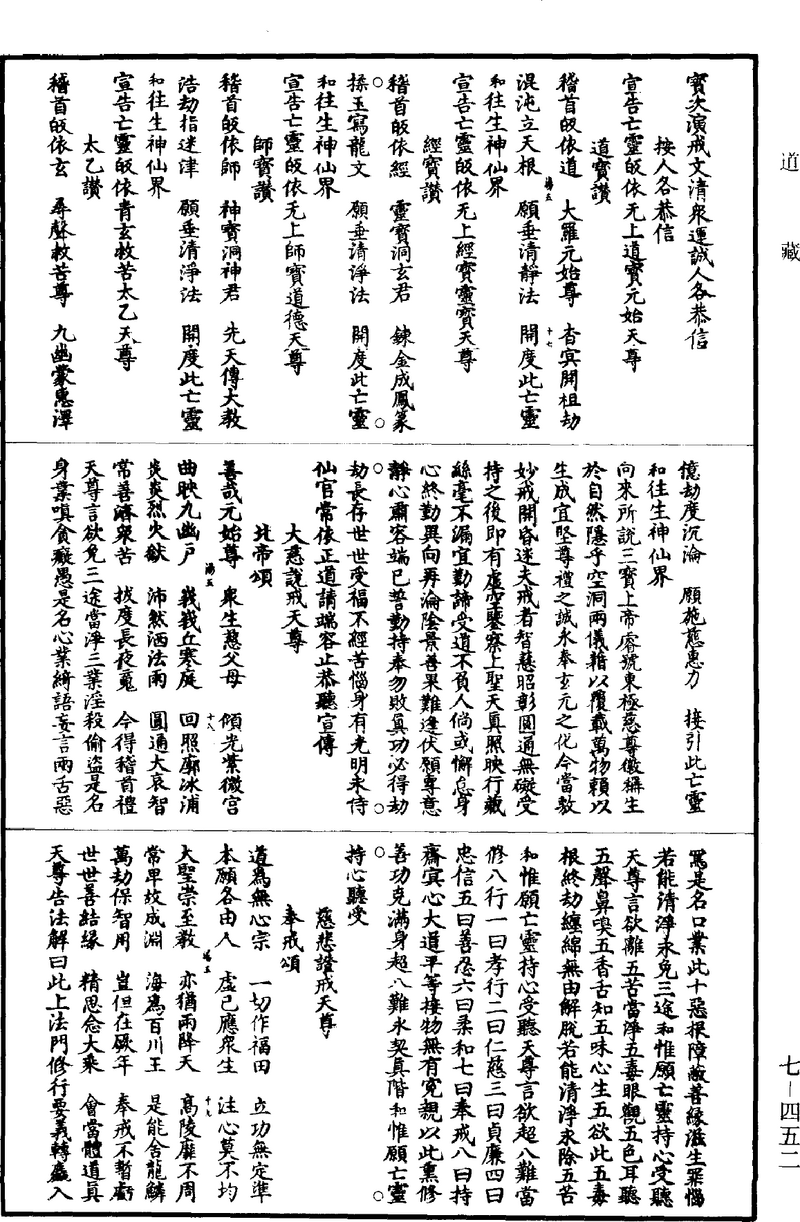 道藏
寳次演戒文清衆運誠人各恭信
按人各恭信
宣告亡靈皈依无上道寳元始天尊
道寳讃
稽首皈依道　大羅元始尊　杳㝠開祖劫
混沌立天根　願垂清靜法　開度此亡靈
和往生神仙界
宣告亡靈皈依无上經寳靈寳天尊
經寳讃
稽首皈依經　靈寳洞玄君　鍊金成鳳篆
揉玉寫龍文　願垂清淨法　開度此亡靈
和往生神仙界
宣告亡靈皈依无上師寳道德天尊
師寳讃
稽首皈依師　神寳洞神君　先天傳大教
浩劫指迷津　願垂清淨法　開度此亡靈
和往生神仙界
宣告亡靈皈依青玄救苦太乙天尊
太乙讃
稽首皈依玄　尋聲救苦尊　九幽蒙惠澤
憶劫度沉淪　願施慈惠力　接引此亡靈
和往生神仙界
向來所說三寳上帝睿號東極慈尊徽稱生
於自然隱乎空洞兩儀藉以覆載萬物頼以
生成宜堅尊禮之誠永奉玄元之化今當敷
妙戒開昏迷夫戒者智慧昭彰圓通無礙受
持之後即有虛空鑒察上聖天真照映行藏
絲毫不漏宜勤諦受道不負人倘或懈怠身
心終勤異向再淪陰景善果難逢伏願專意
靜心肅容端已誓勤持奉勿敗真功必得劫
劫長存世世受福不經苦惱身有光明未侍
仙官常依正道請端容止恭聽宣傳
大慈說戒天尊
北帝頌
善哉元始尊　衆生慈父母　傾光紫微宮
曲映九幽戶　峩峩丘寒庭　回照廓冰浦
炎炎烈火獄　沛然洒法雨　圓通大哀智
常善濟衆苦　拔度長夜䰟　今得稽首禮
天尊言欲免三途當淨三業淫殺偷盜是名
身業嗔貪癡愚是名心業綺語妄言兩舌惡
罵是名口業此十惡根障蔽善緣滋生罪惱
若能清淨永免三途和惟願亡靈持心受聽
天尊言欲離五苦當淨五毒眼觀五色耳聽
五聲鼻嗅五香舌知五味心生五欲此五毒
根終劫纏綿無由解脫若能清淨永除五苦
和惟願亡靈持心受聽天尊言欲超八難當
修八行一曰孝行二曰仁慈三曰貞廉四曰
忠信五曰善忍六曰柔和七曰奉戒八曰持
齋㝠心大道平等接物無有寃親以此熏修
善功克滿身超八難永契真階和惟願亡靈
持心聽受
慈悲證戒天尊
奉戒頌
道為無心宗　一切作福田　立功無定準
本願各由人　虛已應衆生　注心莫不均
大聖崇至教　亦猶雨降天　高陵靡不周
常卑故成淵　海為百川王　是能舍龍鱗
萬劫保智用　豈但在厥年　奉戒不暫虧
世世善結緣　精思念大乘　會當體道真
天尊告法解曰此上法門修行要義轉盡入
七－四五二